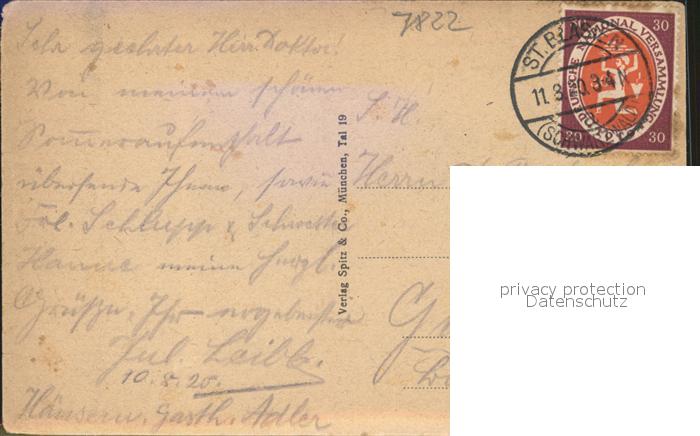 7822
Sehr geehrter Herr Doktor.
Von meinem schönen
Sommeraufenthalt
übersende Ihnen, sowie
Frl. Schlupp & Schwester
Hanne meine herzl.
Grüße. Ihr ergebenster
Jul. Leible.
10.8.20.
Häusern. Gasth. Adler
Verlag Spitz & Co., München, Tal 19
S. H.
Herrn
ST. BLASIEN
11.8.20.3-4 N
(SCHWARZWALD)
30
DEUTSCHE NATIONAL VERSAMMLUNG
30 30
privacy protection
Datenschutz